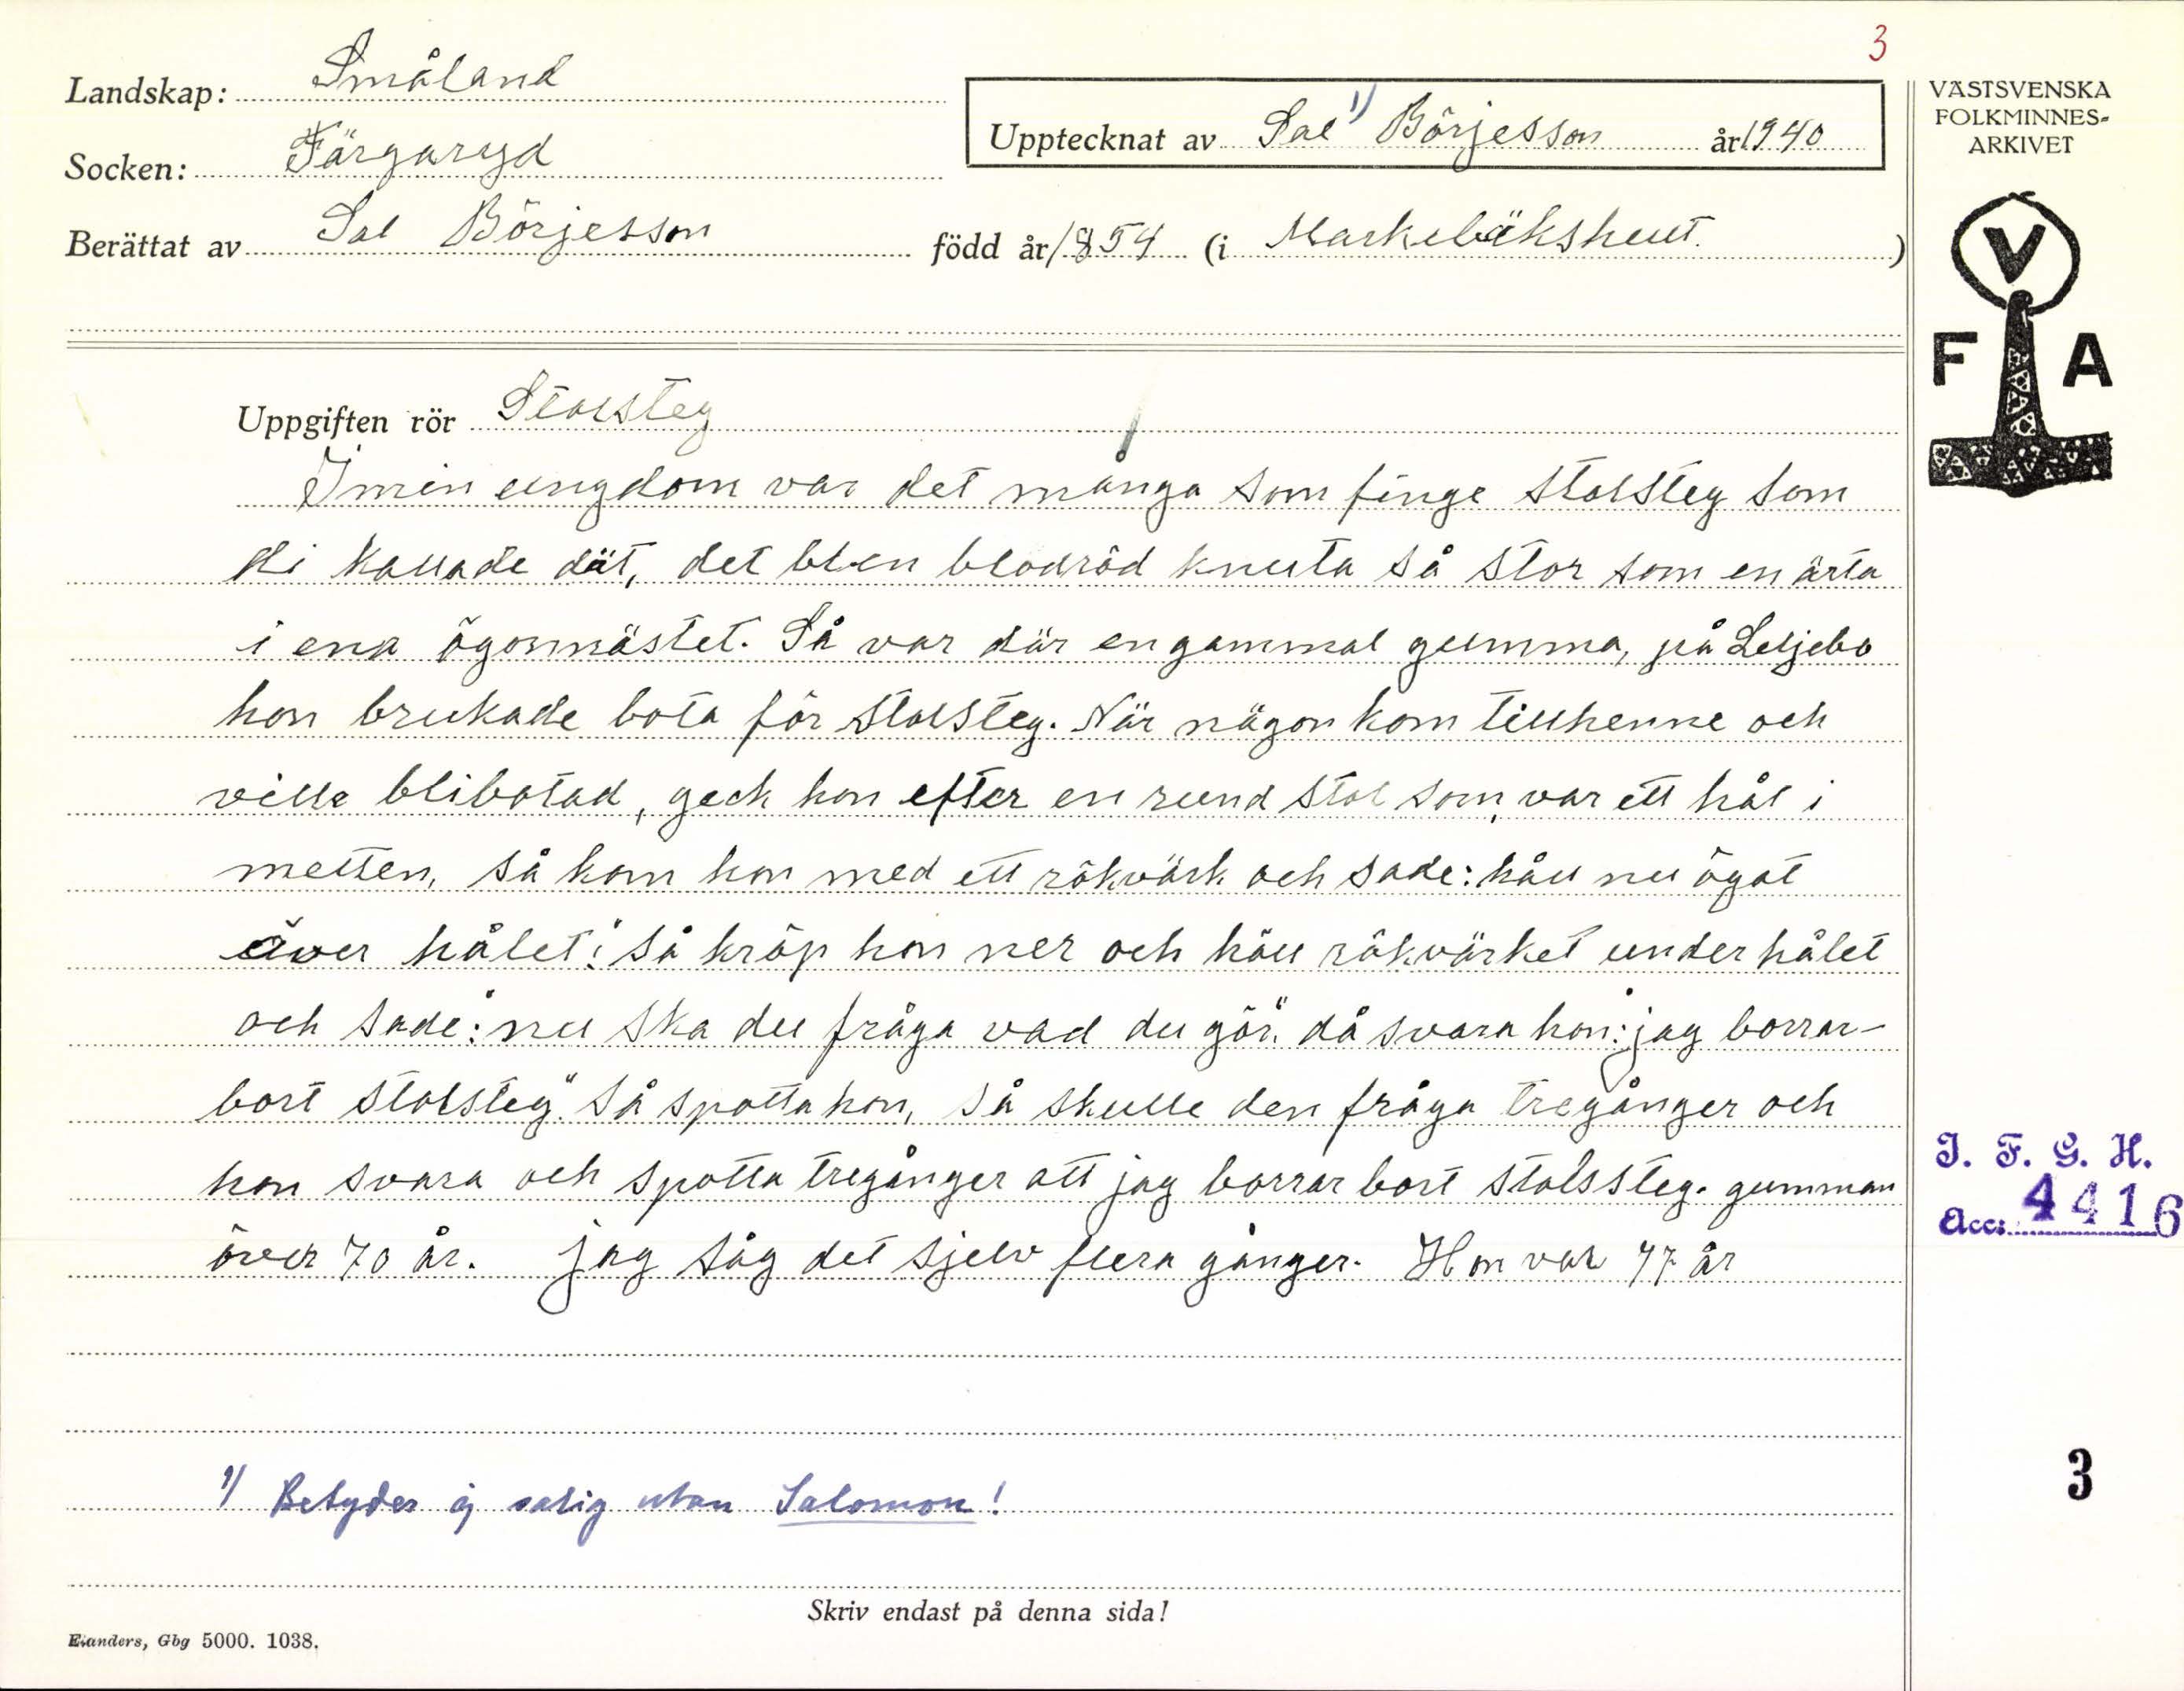 3
Landskap: Småland
Socken: Färgaryd
Berättat av Sal Börjesson född år 1854 (i Markebäkshult.)
Upptecknat av Sal 1) Börjesson år 1940
VÄSTSVENSKA
FOLKMINNES-
ARKIVET
V
F A
Uppgiften rör Stolsteg
I min ungdom var det många som finge stolsteg som
di kallade dät, det bl en blodröd knuta så stor som en ärta
i ena ögonnästet. Så var där en gammal gumma, på Leljebo
hon brukade bota för stolsteg. När någon kom till henne och
ville bli botad, geck hon efter en rund stol som var ett hål i
metten, så kom hon med ett rökvärk och sade: håll nu ögat
över hålet." så kröp hon ner och höll rökvärket under hålet
och sade: "nu ska du fråga vad du gör." då svara hon: "jag borrar
bort stolsteg." Så spotta hon, så skulle den fråga tre gånger och
hon svara och spotta tre gånger att jag borrar bort stolssteg. gumman
över 70 år. jag såg det sjelv flera gånger. Hon var 77 år
1) Betyder ej salig utan Salomon!
Skriv endast på denna sida!
Elanders, Gbg 5000. 1038.
I. F. G. H.
Acc: 4416
3